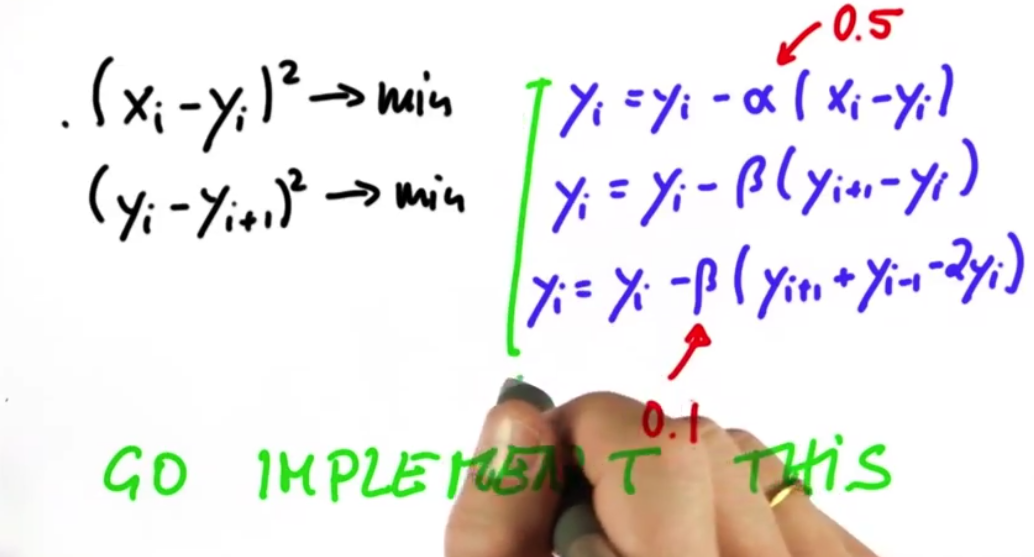 (xᵢ - yᵢ)² → min
(yᵢ - yᵢ₊₁)² → min
0.5
yᵢ = yᵢ - α(xᵢ - yᵢ)
yᵢ = yᵢ - β(yᵢ₊₁ - yᵢ)
yᵢ = yᵢ - β(yᵢ₊₁ + yᵢ₋₁ - 2yᵢ)
0.1
GO IMPLEMENT THIS